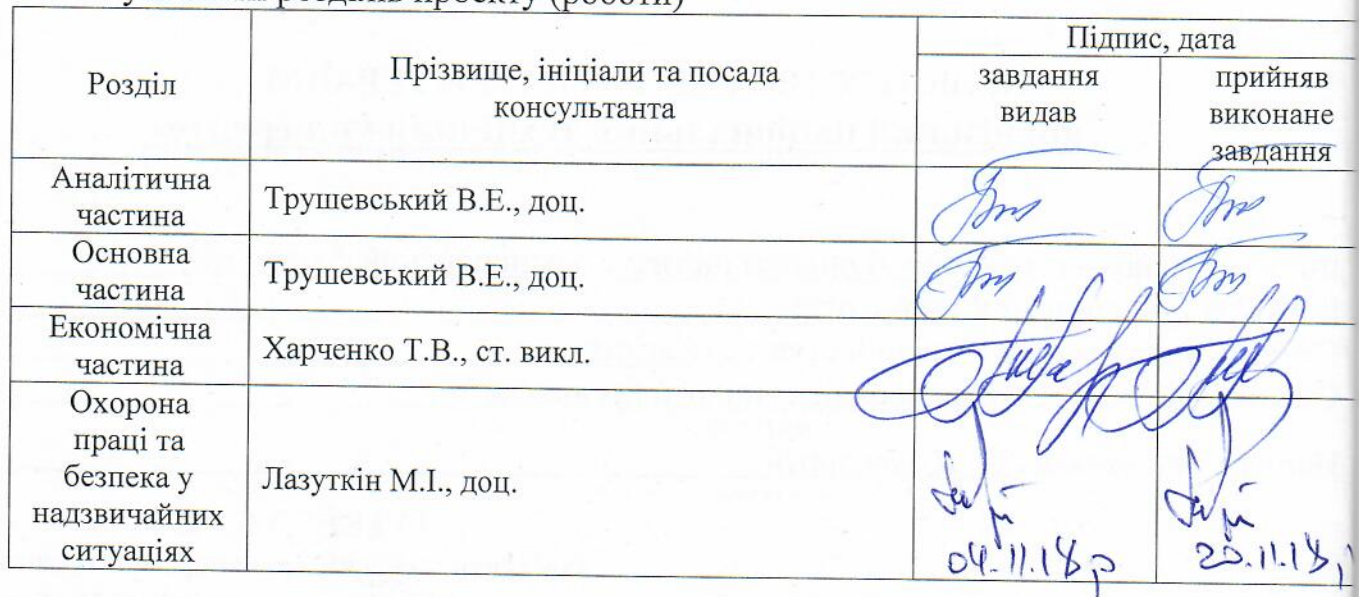 розділів проекту (роботи)
Розділ
Прізвище, ініціали та посада
консультанта
Підпис, дата
завдання
видав
прийняв
виконане
завдання
Аналітична
частина
Трушевський В.Е., доц.
Основна
частина
Трушевський В.Е., доц.
Економічна
частина
Харченко Т.В., ст. викл.
Охорона
праці та
безпека у
надзвичайних
ситуаціях
Лазуткін М.І., доц.
04.11.18р
20.11.18